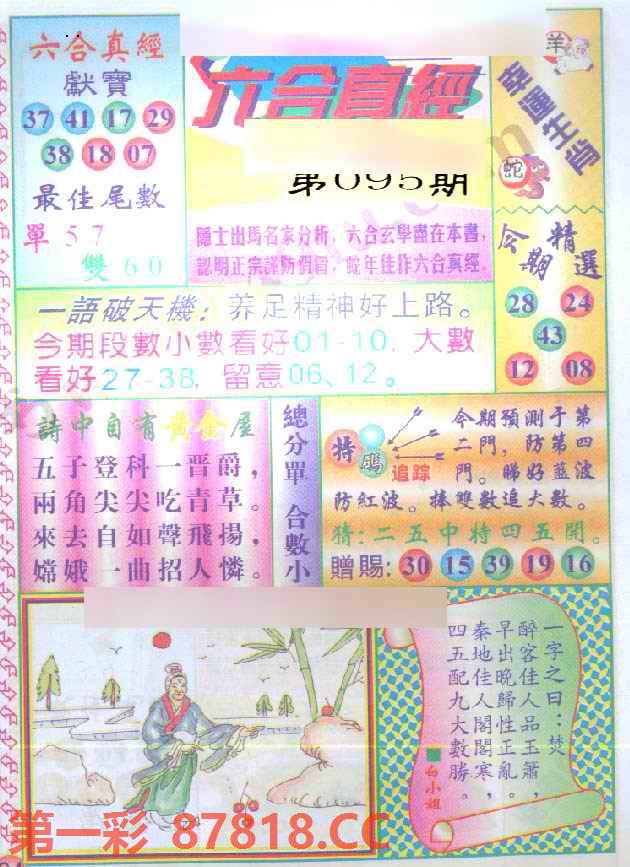 六合真經
獻寶
37 41 17 29
38 18 07
最佳尾數
單 5 7
雙 6 0
六合真經
第095期
隱士出馬名家分析，六合玄學盡在本書，
認明正宗謹防假冒，蛇年佳作六合真經。
羊
幸運生肖
蛇
今期精選
28 24
43
12 08
一語破天機：养足精神好上路。
今期段數小數看好01-10，大數
看好27-38，留意06、12。
詩中自有黃金屋
五子登科一晋爵，
兩角尖尖吃青草。
來去自如聲飛揚，
嫦娥一曲招人憐。
總分單 合數小
特碼
追踪
今期預測于第
二門，防第四
門。睇好藍波
防紅波。棒雙數追大數。
猜：二五中特四五開。
贈賜：30 15 39 19 16
一字之曰：焚
醉客佳人品玉簫，
早出晚歸性正亂。
秦地佳人閣閣寒，
四五配九大數勝。
白小姐
第一彩 87818.CC